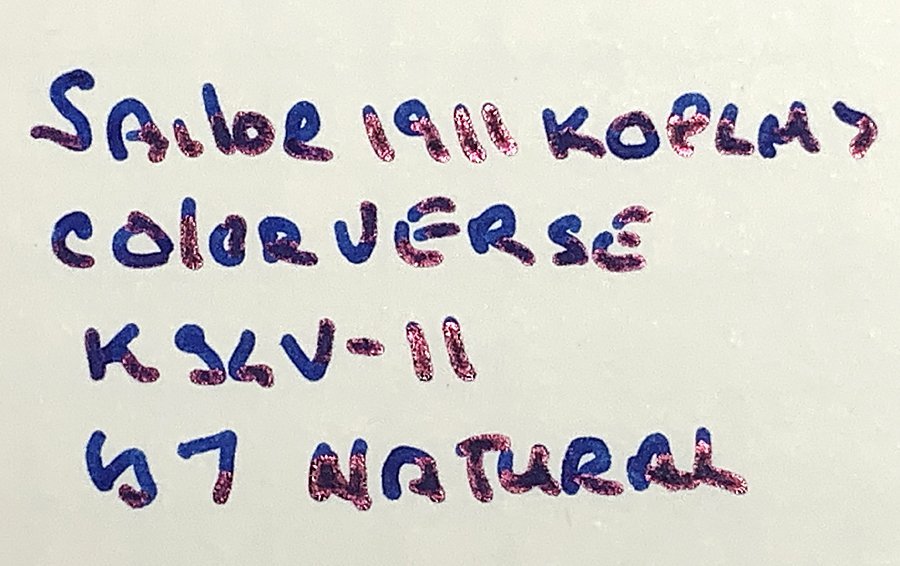 SAilOR 1911 KOPLM >
COlORVERSE
KSLV-11
S7 NATURAL